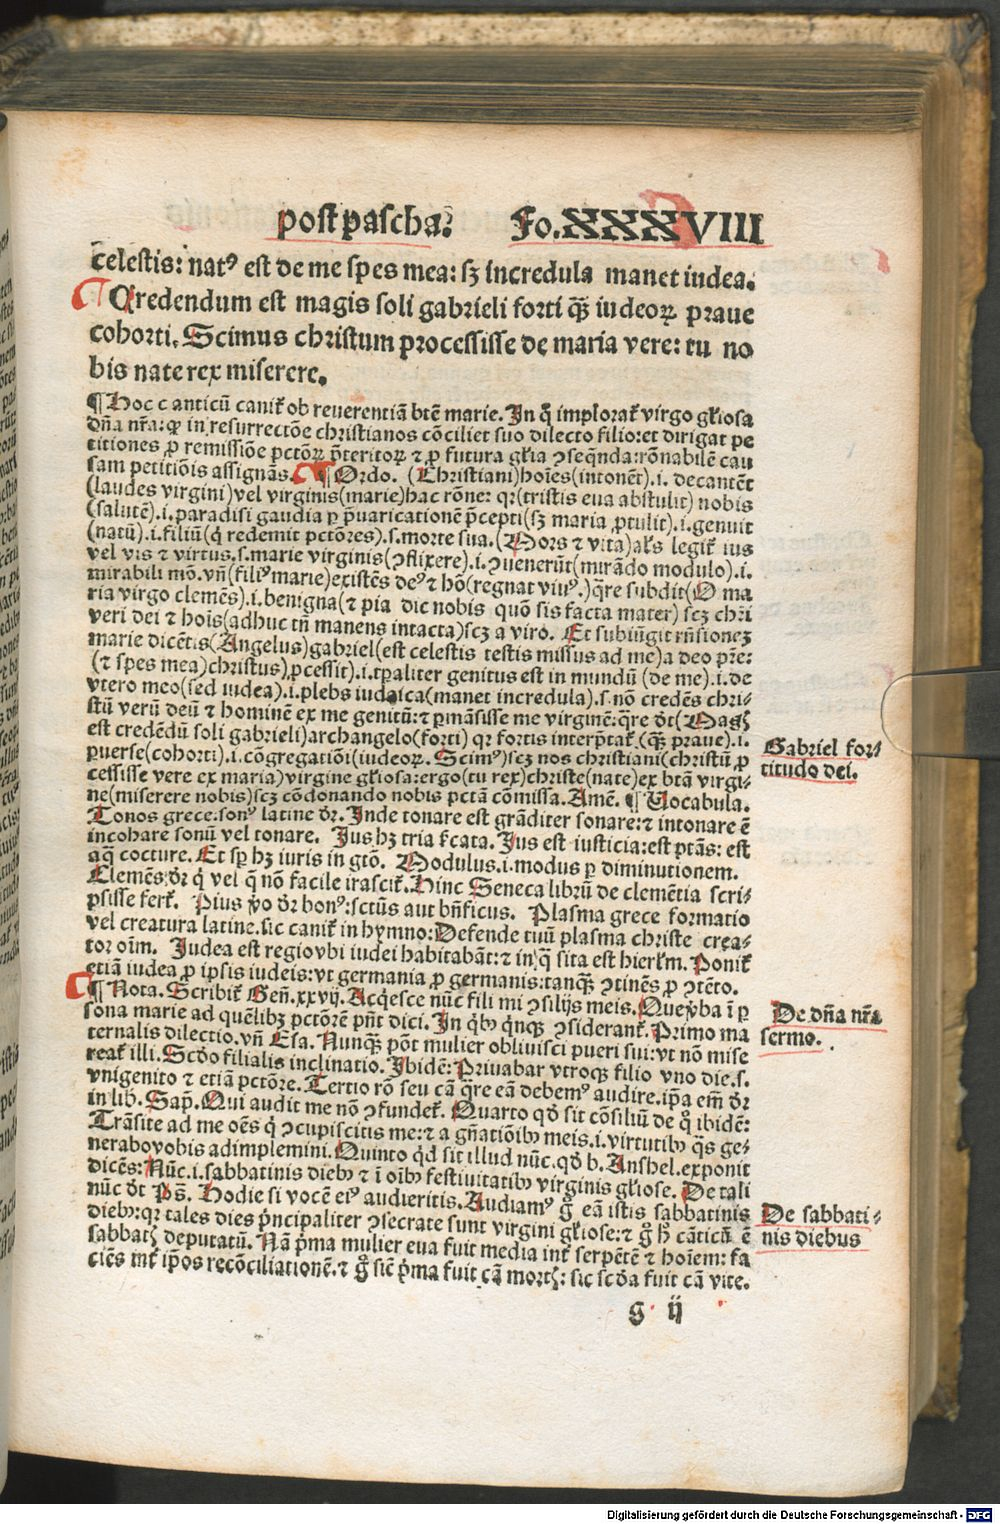 post pascha. Fo. XXXVIII
celestis: natꝰ est de me spes mea: sꝫ incredula manet iudea.
Credendum est magis soli gabrieli forti qꝫ̃ iudeoꝝ praue
cohorti. Scimus christum processisse de maria vere: tu no
bis nate rex miserere.
¶ Hoc canticū canit̃ ob reuerentiā btē marie. In q̄ implorat̃ virgo gl̃iosa
dñā nr̄aꝫ: ꝙ in resurrectōe christianos cōciliet suo dilecto filio: et dirigat pe
titiones ꝓ remissiōe pctōꝝ p̄teritoꝝ ⁊ ꝓ futura gl̃ia ꝯseq̄nda: rōnabilē cau
sam petitiōis assignās. ¶ Ordo. (Christiani) hoīes (intonēt) .i. decantēt
(laudes virgini) vel virginis (marie) hac rōne: qꝛ (tristis eua abstulit) nobis
(salutē) .i. paradisi gaudia ꝑ p̄uaricationē p̄cepti (sꝫ maria ꝓtulit) .i. genuit
(natū) .i. filiū (q̇ redemit pctōres) .s. morte sua. (Mors ⁊ vita) al̃s legit̃ ius
vel vis ⁊ virtus .s. marie virginis (ꝯflixere) .i. ꝯuenerūt (mirādo modulo) .i.
mirabili mō. vn̄ (filiꝰ marie) existēs deꝰ ⁊ hō (regnat viuꝰ.) q̄re subdit (O ma
ria virgo clemēs) .i. benigna (⁊ pia dic nobis quō sis facta mater) scꝫ chr̄i
veri dei ⁊ hoīs (adhuc tn̄ manens intacta) scꝫ a viro. Et subiūgit rn̄sionez
marie dicētis (Angelus) gabriel (est celestis testis missus ad me) a deo pr̄e:
(⁊ spes mea) christus) ꝓcessit) .i. tꝑaliter genitus est in mundū (de me) .i. de
vtero meo (sed iudea) .i. plebs iudaica (manet incredula) .s. nō credēs chri-
stū verū deū ⁊ hominē ex me genitū: ⁊ ꝑmāsisse me virginē: q̄re dt̄ (Magꝭ
est credēdū soli gabrieli) archangelo (forti) qꝛ fortis interp̄tat̃ (qꝫ̃ praue) .i.
ꝑuerse (cohorti) .i. cōgregatiōi (iudeoꝝ. Scimꝰ) scꝫ nos christiani (christū ꝓ
cessisse vere ex maria) virgine gl̃iosa: ergo (tu rex) christe (nate) ex btā virgi-
ne (miserere nobis) scꝫ cōdonando nobis pctā cōmissa. Amē. ¶ Uocabula.
Tonos grece: sonꝰ latine dr̄. Inde tonare est grāditer sonare: ⁊ intonare ē
incohare sonū vel tonare. Jus hꝫ tria ſc̃ata. Jus est iusticia: est ptās: est
aq̄ cocture. Et sꝑ hꝫ iuris in gtō. Modulus .i. modus ꝑ diminutionem.
Clemēs dr̄ q̇ vel q̄ nō facile irascit̃. Hinc Seneca librū de clemētia scri-
psisse fert̃. Pius v̄o dr̄ bonꝰ: sctūs aut bn̄ficus. Plasma grece formatio
vel creatura latine. sic canit̃ in hymno: Defende tuū plasma christe crea-
tor oīm. Judea est regio vbi iudei habitabāt: ⁊ in q̄ sita est hierl̃m. Ponit̃
etiā iudea ꝓ ipsis iudeis: vt germania ꝓ germanis: tanqꝫ̃ ꝯtinēs ꝓ ꝯtēto.
¶ Nota. Scribit̃ Geñ. xxvij. Acq̇esce nūc fili mi ꝯsilijs meis. Que v̄ba ī ꝑ
sona marie ad quēlibꝫ pctōrē pn̄t dici. In q̇bꝰ q̇nqꝫ ꝯsiderant̃. Primo ma
ternalis dilectio. vn̄ Esa. Nunqꝫ̃ pōt mulier obliuisci pueri sui: vt nō mise
reat̃ illi. Scd̄o filialis inclinatio. Ibidē: Priuabar vtroqꝫ filio vno die .s.
vnigenito ⁊ etiā pctōre. Tertio rō seu cā q̄re eā debemꝰ audire. ip̄a em̄ dr̄
in lib. Sap̄. Qui audit me nō ꝯfundet̃. Quarto qd̄ sit cōsiliū de q̇ ibidē:
Trāsite ad me oēs q̇ ꝯcupiscitis me: ⁊ a gn̄atiōibꝰ meis .i. virtutibꝰ q̄s ge-
nerabo vobis adimplemini. Quinto q̇d sit illud nūc. qd̄ b. Anshel. exponit
dicēs: Nūc .i. sabbatinis diebꝰ ⁊ ī oībꝰ festiuitatibꝰ virginis gl̃iose. De tali
nūc dt̄ Ps̄. Hodie si vocē eiꝰ audieritis. Audiamꝰ g̊ eā istis sabbatinis
diebꝰ: qꝛ tales dies p̄ncipaliter ꝯsecrate sunt virgini gl̃iose: ⁊ g̊ h̄ cāticū ē
sabbatꝭ deputatū. Nā p̄ma mulier eua fuit media int̃ serpētē ⁊ hoīem: fa
ciēs int̃ ip̄os recōciliationē. ⁊ g̊ sic̄ p̄ma fuit cā mortꝭ: sic scd̄a fuit cā vite.
g ij
Gabriel for-
titudo dei.
De dn̄a nr̄a
sermo.
De sabbati-
nis diebus
Digitalisierung gefördert durch die Deutsche Forschungsgemeinschaft - DFG